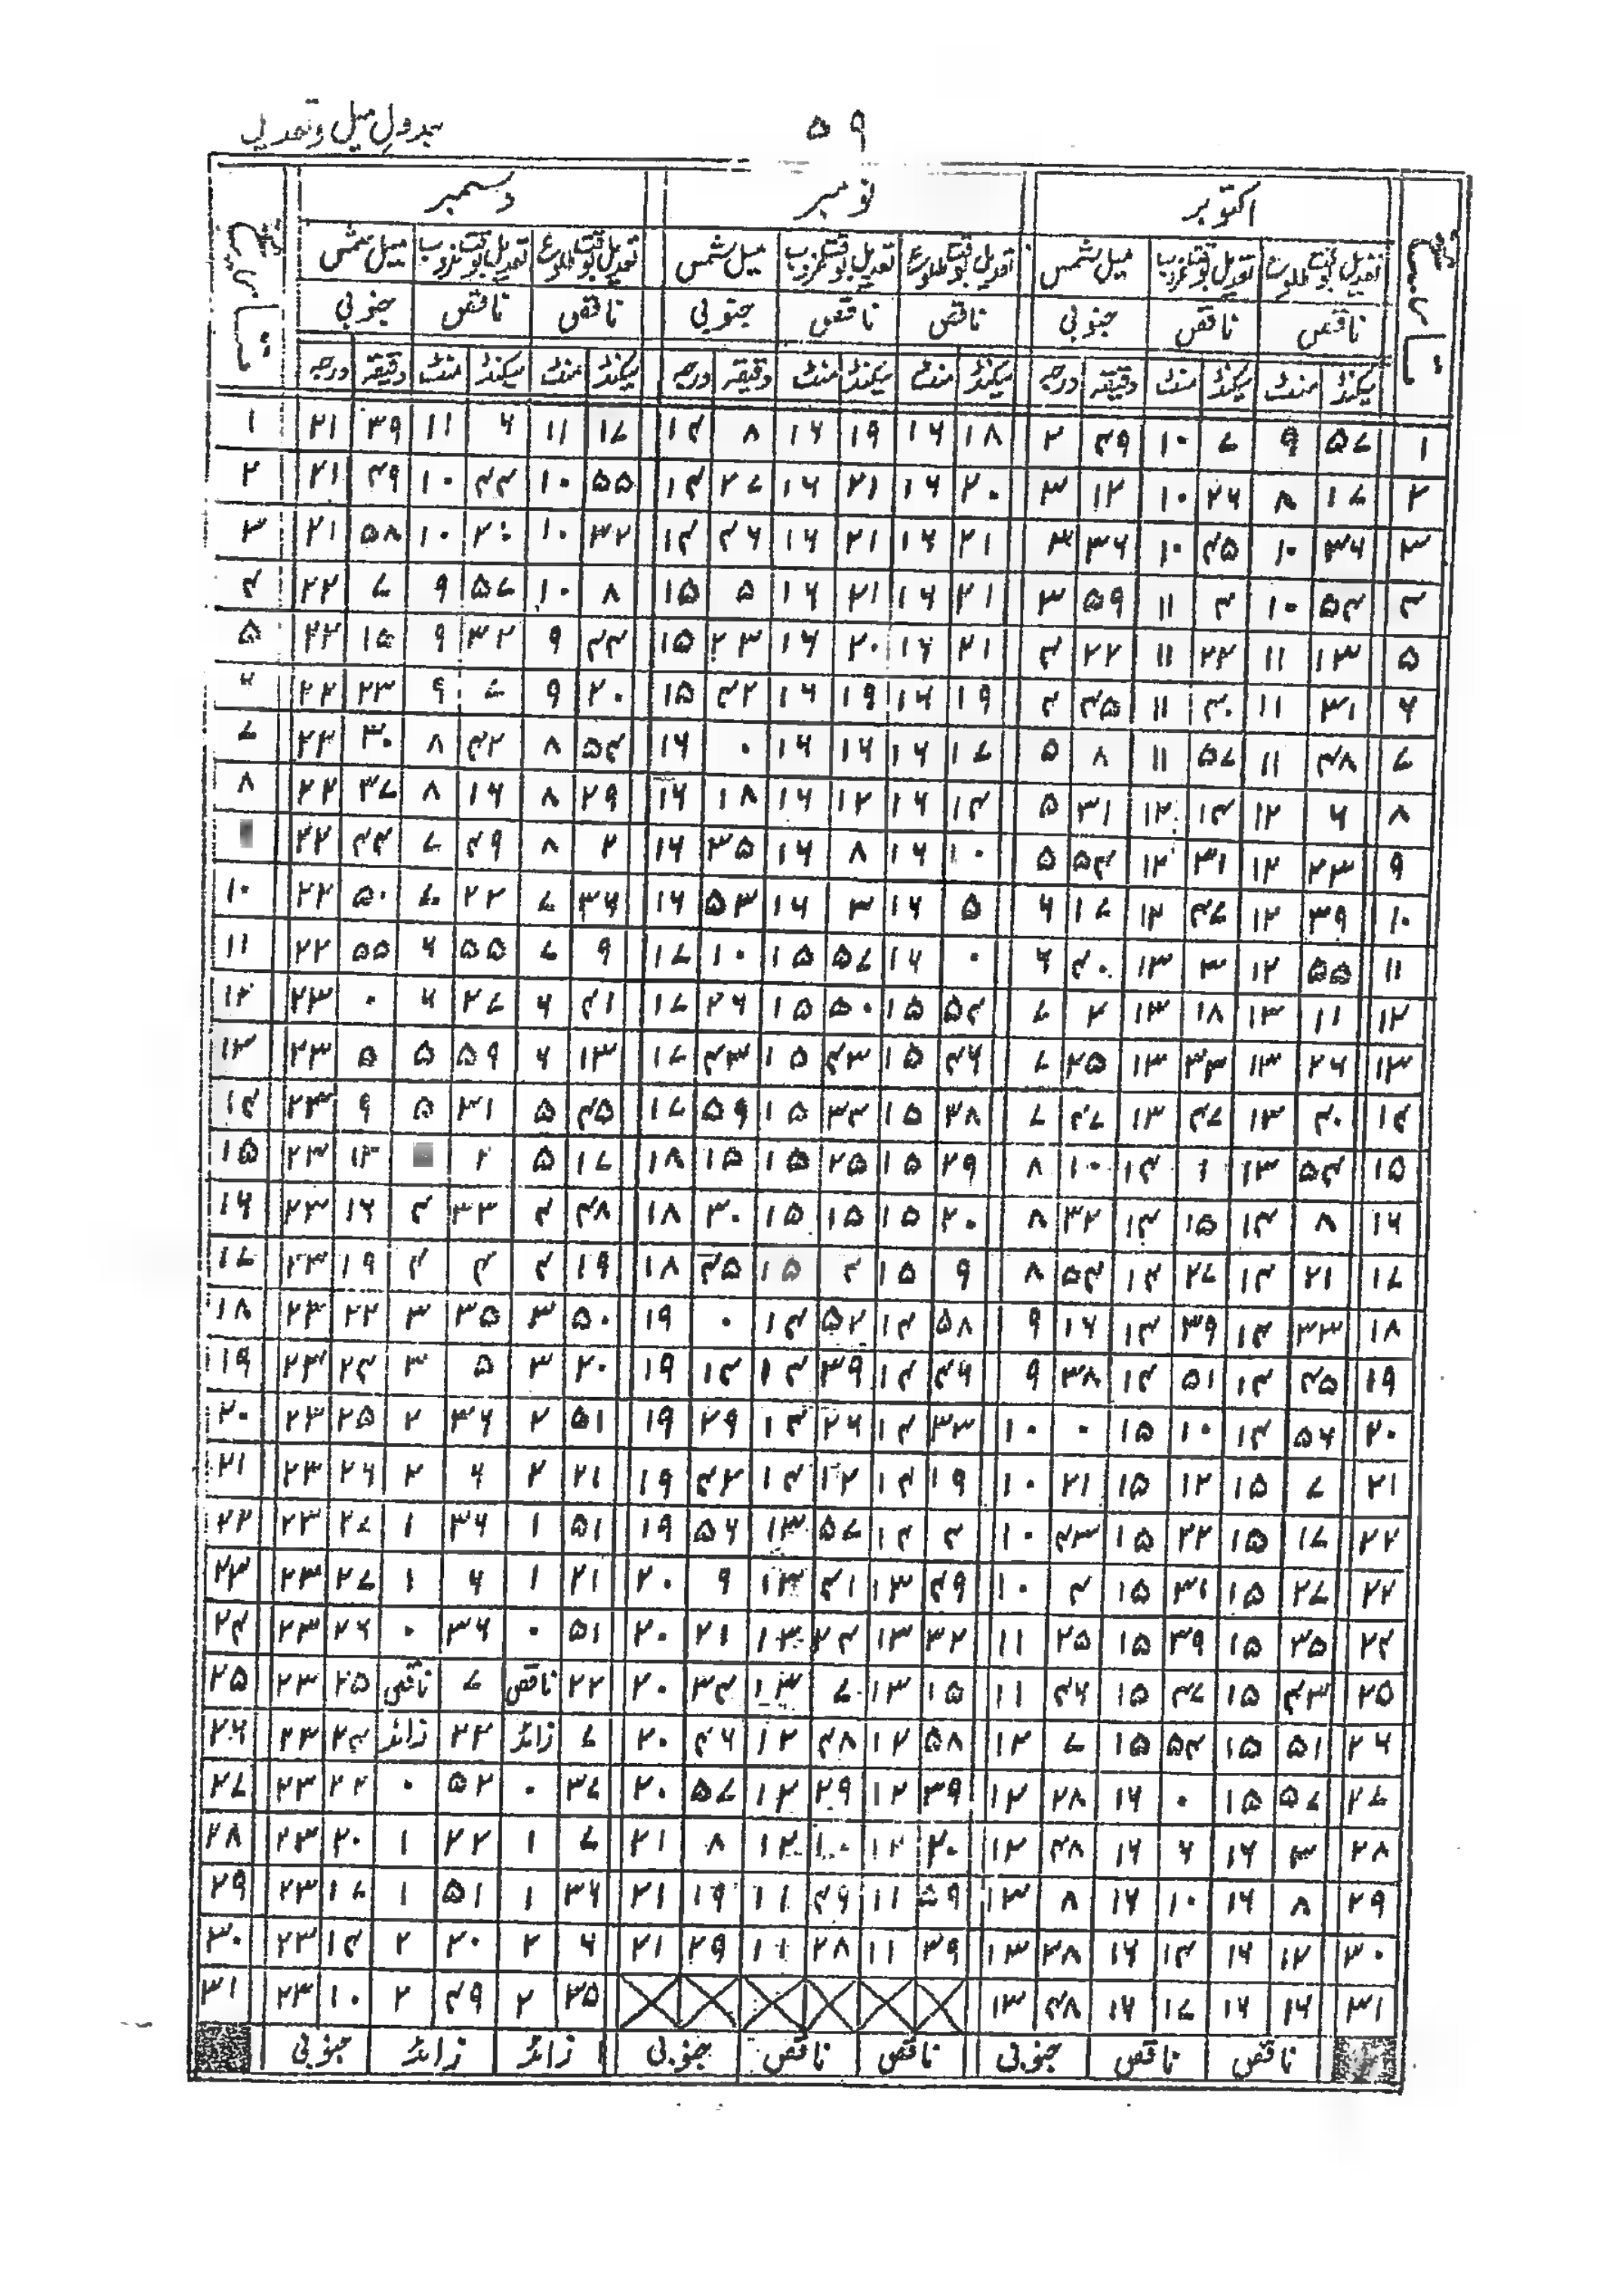 ۵۹
جدولِ میل و تعدیل
اکتوبر نومبر دسمبر
تعدیل بوقت طلوع تعدیل بوقت غروب میل شمس تعدیل بوقت طلوع تعدیل بوقت غروب میل شمس تعدیل بوقت طلوع تعدیل بوقت غروب میل شمس
ناقص ناقص جنوبی ناقص ناقص جنوبی ناقص ناقص جنوبی
سیکنڈ منٹ سیکنڈ منٹ دقیقہ درجہ سیکنڈ منٹ سیکنڈ منٹ دقیقہ درجہ سیکنڈ منٹ سیکنڈ منٹ دقیقہ درجہ
۱ ۵۷ ۹ ۷ ۱۰ ۴۹ ۲ ۱۸ ۱۶ ۱۹ ۱۶ ۸ ۱۴ ۱۷ ۱۱ ۶ ۱۱ ۳۹ ۲۱ ۱
۲ ۱۷ ۸ ۲۶ ۱۰ ۱۲ ۳ ۲۰ ۱۶ ۲۱ ۱۶ ۲۷ ۱۴ ۵۵ ۱۰ ۴۴ ۱۰ ۴۹ ۲۱ ۲
۳ ۳۶ ۱۰ ۴۵ ۱۰ ۳۶ ۳ ۲۱ ۱۶ ۲۱ ۱۶ ۴۶ ۱۴ ۳۲ ۱۰ ۲۰ ۱۰ ۵۸ ۲۱ ۳
۴ ۵۴ ۱۰ ۴ ۱۱ ۵۹ ۳ ۲۱ ۱۶ ۲۱ ۱۶ ۵ ۱۵ ۸ ۱۰ ۵۷ ۹ ۷ ۲۲ ۴
۵ ۱۳ ۱۱ ۲۲ ۱۱ ۲۲ ۴ ۲۱ ۱۶ ۲۰ ۱۶ ۲۳ ۱۵ ۴۴ ۹ ۳۲ ۹ ۱۵ ۲۲ ۵
۶ ۳۱ ۱۱ ۴۰ ۱۱ ۴۵ ۴ ۱۹ ۱۶ ۱۹ ۱۶ ۴۲ ۱۵ ۲۰ ۹ ۷ ۹ ۲۳ ۲۲ ۶
۷ ۴۸ ۱۱ ۵۷ ۱۱ ۸ ۵ ۱۷ ۱۶ ۱۶ ۱۶ ۰ ۱۶ ۵۴ ۸ ۴۲ ۸ ۳۰ ۲۲ ۷
۸ ۶ ۱۲ ۱۴ ۱۲ ۳۱ ۵ ۱۴ ۱۶ ۱۲ ۱۶ ۱۸ ۱۶ ۲۹ ۸ ۱۶ ۸ ۳۷ ۲۲ ۸
۹ ۲۳ ۱۲ ۳۱ ۱۲ ۵۴ ۵ ۱۰ ۱۶ ۸ ۱۶ ۳۵ ۱۶ ۲ ۸ ۴۹ ۷ ۴۴ ۲۲
۱۰ ۳۹ ۱۲ ۴۷ ۱۲ ۱۷ ۶ ۵ ۱۶ ۳ ۱۶ ۵۳ ۱۶ ۳۶ ۷ ۲۲ ۷ ۵۰ ۲۲ ۱۰
۱۱ ۵۵ ۱۲ ۳ ۱۳ ۴۰ ۶ ۰ ۱۶ ۵۷ ۱۵ ۱۰ ۱۷ ۹ ۷ ۵۵ ۶ ۵۵ ۲۲ ۱۱
۱۲ ۱۱ ۱۳ ۱۸ ۱۳ ۲ ۷ ۵۴ ۱۵ ۵۰ ۱۵ ۲۶ ۱۷ ۴۱ ۶ ۲۷ ۶ ۰ ۲۳ ۱۲
۱۳ ۲۶ ۱۳ ۳۳ ۱۳ ۲۵ ۷ ۴۶ ۱۵ ۴۳ ۱۵ ۴۳ ۱۷ ۱۳ ۶ ۵۹ ۵ ۵ ۲۳ ۱۳
۱۴ ۴۰ ۱۳ ۴۷ ۱۳ ۴۷ ۷ ۳۸ ۱۵ ۳۴ ۱۵ ۵۹ ۱۷ ۴۵ ۵ ۳۱ ۵ ۹ ۲۳ ۱۴
۱۵ ۵۴ ۱۳ ۱ ۱۴ ۱۰ ۸ ۲۹ ۱۵ ۲۵ ۱۵ ۱۵ ۱۸ ۱۷ ۵ ۲ ۱۳ ۲۳ ۱۵
۱۶ ۸ ۱۴ ۱۵ ۱۴ ۳۲ ۸ ۲۰ ۱۵ ۱۵ ۱۵ ۳۰ ۱۸ ۴۸ ۴ ۳۳ ۴ ۱۶ ۲۳ ۱۶
۱۷ ۲۱ ۱۴ ۲۷ ۱۴ ۵۴ ۸ ۹ ۱۵ ۴ ۱۵ ۴۵ ۱۸ ۱۹ ۴ ۴ ۴ ۱۹ ۲۳ ۱۷
۱۸ ۳۳ ۱۴ ۳۹ ۱۴ ۱۶ ۹ ۵۸ ۱۴ ۵۲ ۱۴ ۰ ۱۹ ۵۰ ۳ ۳۵ ۳ ۲۲ ۲۳ ۱۸
۱۹ ۴۵ ۱۴ ۵۱ ۱۴ ۳۸ ۹ ۴۶ ۱۴ ۳۹ ۱۴ ۱۴ ۱۹ ۲۰ ۳ ۵ ۳ ۲۴ ۲۳ ۱۹
۲۰ ۵۶ ۱۴ ۱۰ ۱۵ ۰ ۱۰ ۳۳ ۱۴ ۲۶ ۱۴ ۲۹ ۱۹ ۵۱ ۲ ۳۶ ۲ ۲۵ ۲۳ ۲۰
۲۱ ۷ ۱۵ ۱۲ ۱۵ ۲۱ ۱۰ ۱۹ ۱۴ ۱۲ ۱۴ ۴۲ ۱۹ ۲۱ ۲ ۶ ۲ ۲۶ ۲۳ ۲۱
۲۲ ۱۷ ۱۵ ۲۲ ۱۵ ۴۳ ۱۰ ۴ ۱۴ ۵۷ ۱۳ ۵۶ ۱۹ ۵۱ ۱ ۳۶ ۱ ۲۷ ۲۳ ۲۲
۲۲ ۲۷ ۱۵ ۳۱ ۱۵ ۴ ۱۰ ۴۹ ۱۳ ۴۱ ۱۳ ۹ ۲۰ ۲۱ ۱ ۶ ۱ ۲۷ ۲۳ ۲۳
۲۴ ۳۵ ۱۵ ۳۹ ۱۵ ۲۵ ۱۱ ۳۲ ۱۳ ۲۴ ۱۳ ۲۱ ۲۰ ۵۱ ۰ ۳۶ ۰ ۲۶ ۲۳ ۲۴
۲۵ ۴۳ ۱۵ ۴۷ ۱۵ ۴۶ ۱۱ ۱۵ ۱۳ ۷ ۱۳ ۳۴ ۲۰ ۲۲ ناقص ۷ ناقص ۲۵ ۲۳ ۲۵
۲۶ ۵۱ ۱۵ ۵۴ ۱۵ ۷ ۱۲ ۵۸ ۱۲ ۴۸ ۱۲ ۴۶ ۲۰ ۷ زائد ۲۲ زائد ۲۴ ۲۳ ۲۶
۲۷ ۵۷ ۱۵ ۰ ۱۶ ۲۸ ۱۲ ۳۹ ۱۲ ۲۹ ۱۲ ۵۷ ۲۰ ۳۷ ۰ ۵۲ ۰ ۲۲ ۲۳ ۲۷
۲۸ ۳ ۱۶ ۶ ۱۶ ۴۸ ۱۲ ۲۰ ۱۲ ۱۰ ۱۲ ۸ ۲۱ ۷ ۱ ۲۲ ۱ ۲۰ ۲۳ ۲۸
۲۹ ۸ ۱۶ ۱۰ ۱۶ ۸ ۱۳ ۵۹ ۱۱ ۴۹ ۱۱ ۱۹ ۲۱ ۳۶ ۱ ۵۱ ۱ ۱۷ ۲۳ ۲۹
۳۰ ۱۲ ۱۶ ۱۴ ۱۶ ۲۸ ۱۳ ۳۹ ۱۱ ۲۸ ۱۱ ۲۹ ۲۱ ۶ ۲ ۲۰ ۲ ۱۴ ۲۳ ۳۰
۳۱ ۱۶ ۱۶ ۱۷ ۱۶ ۴۸ ۱۳ ۳۵ ۲ ۴۹ ۲ ۱۰ ۲۳ ۳۱
ناقص ناقص جنوبی ناقص ناقص جنوبی زائد زائد جنوبی